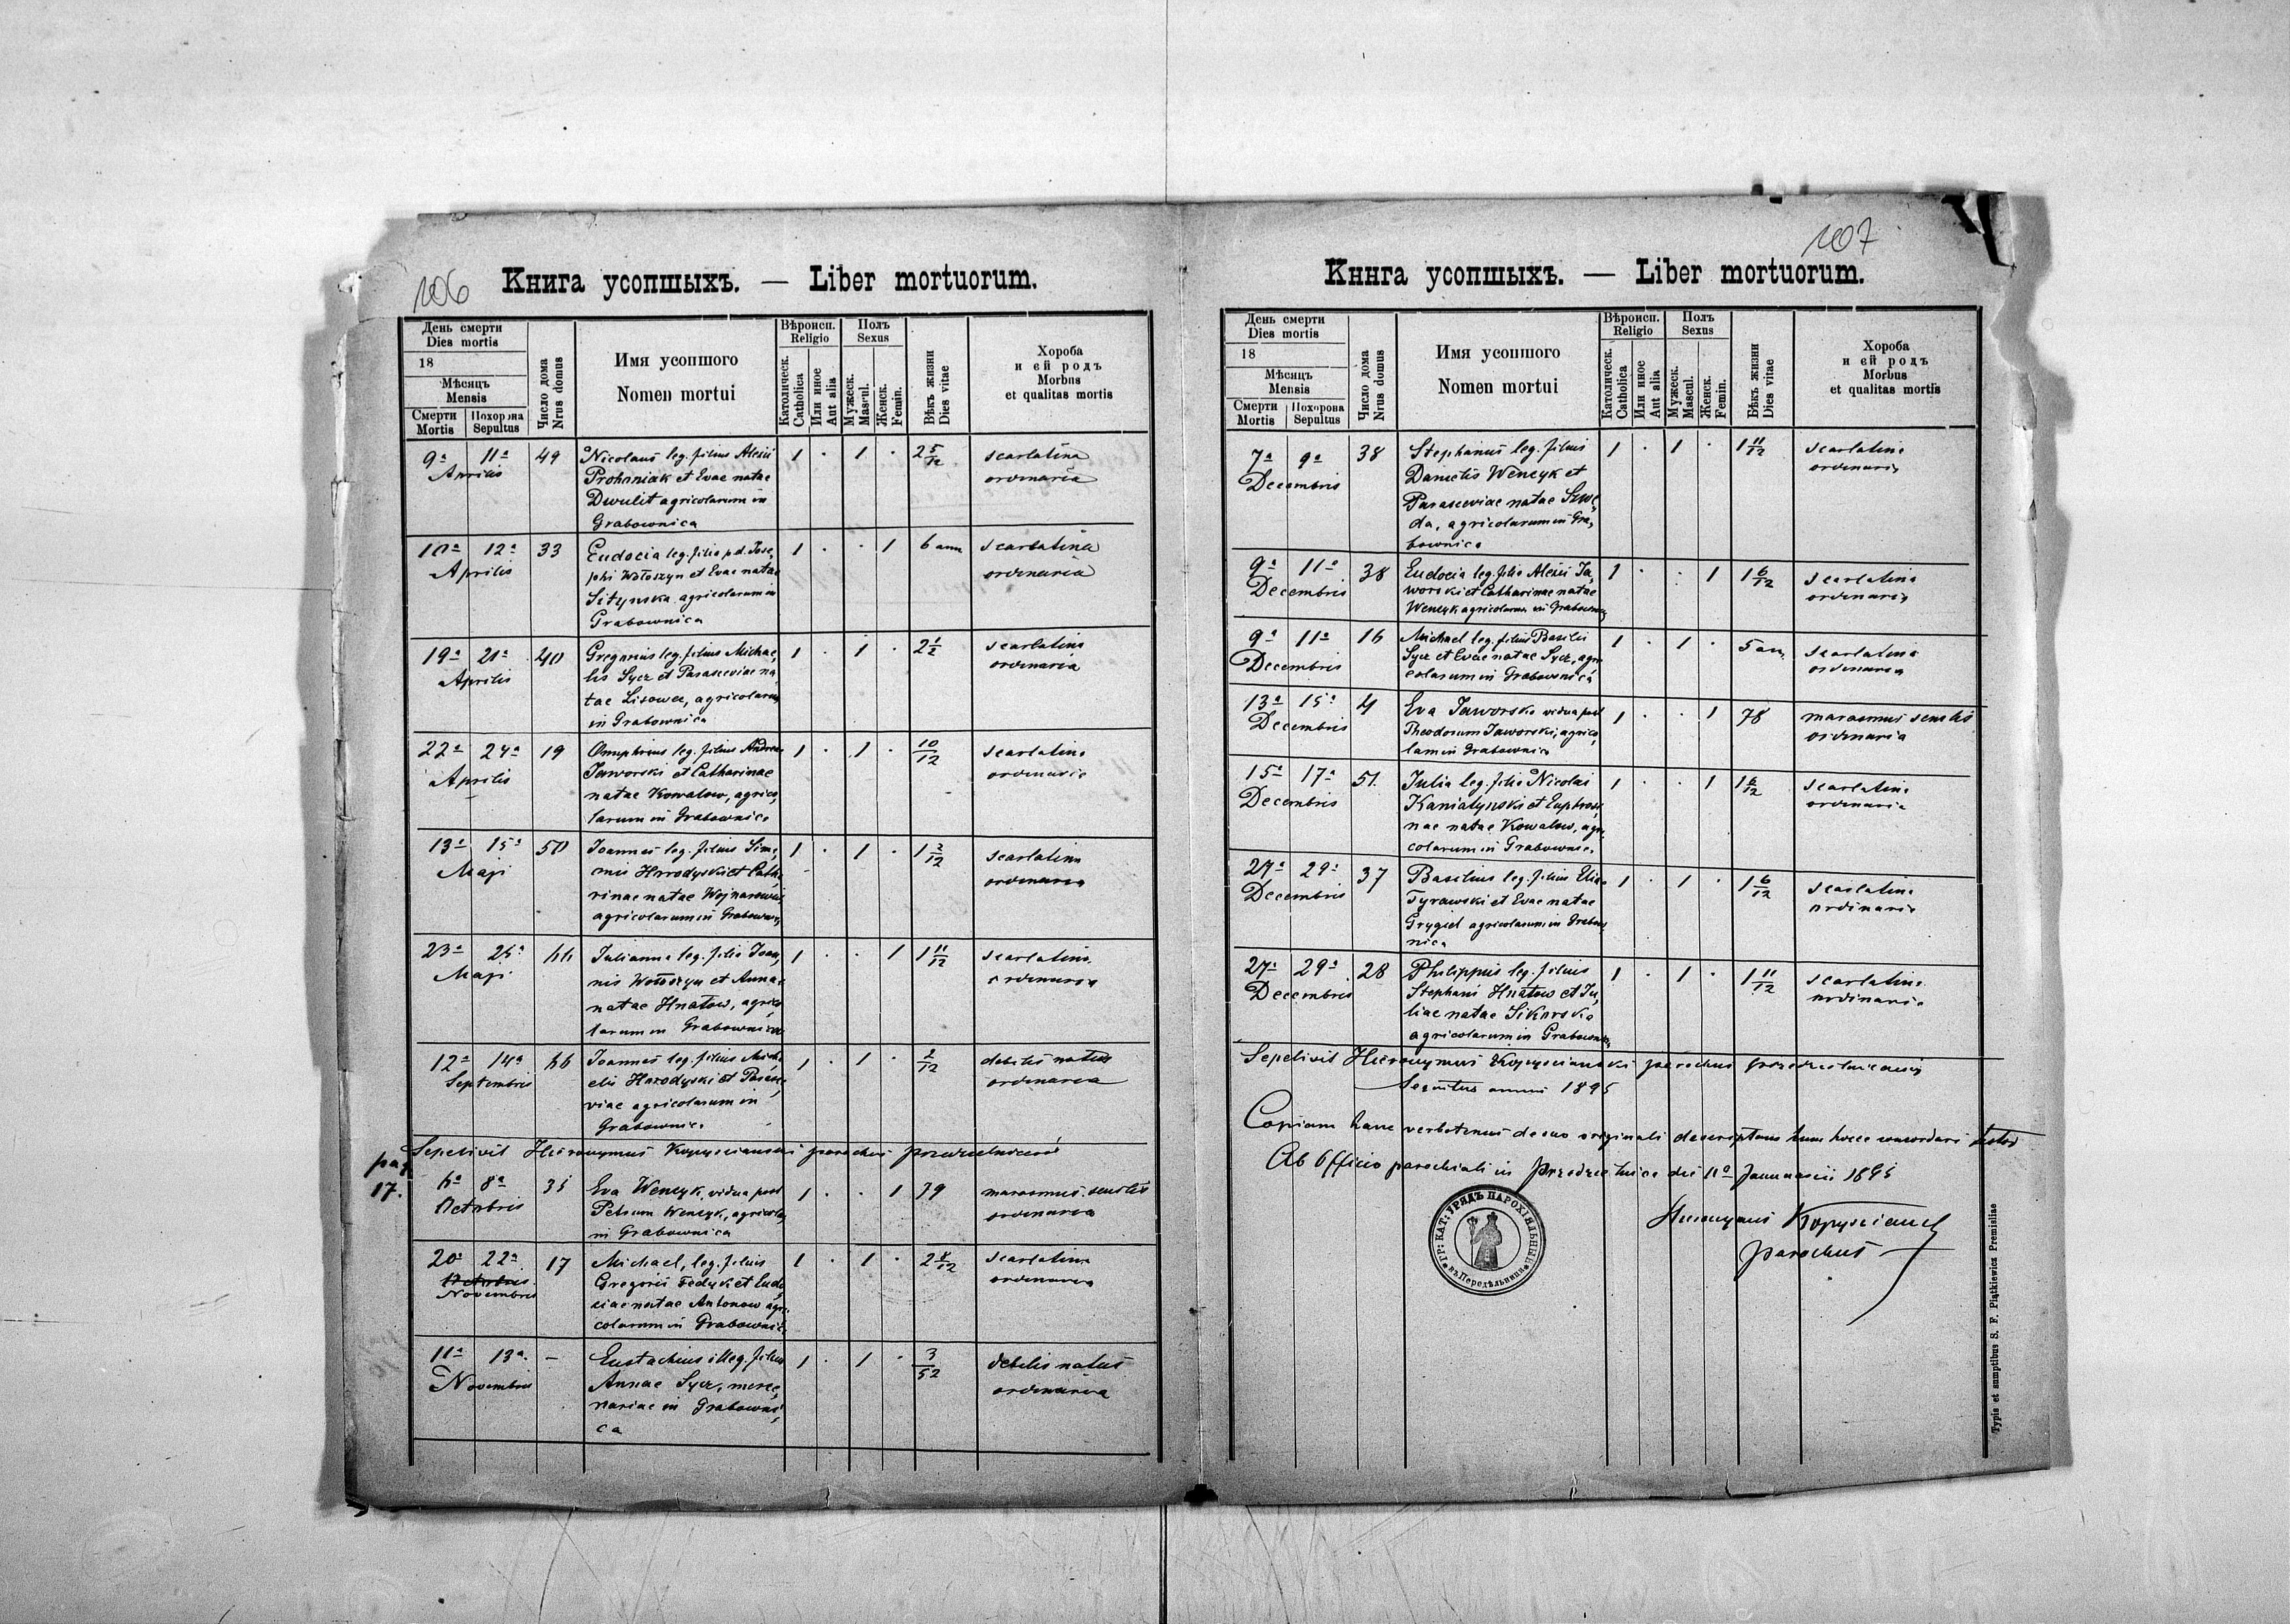 106
Книга усопшыхъ. — Liber mortuorum.
День смерти
Dies mortis
18
Мѣсяцъ
Mensis
Смерти
Mortis
Похорона
Sepultus
Число дома
Nrus domus
Имя усопшого
Nomen mortui
Вѣроисп.
Religio
Католическ.
Catholica
Или иное
Aut alia
Полъ
Sexus
Мужеск.
Mascul.
Женск.
Femin.
Вѣкъ жизни
Dies vitae
Хороба
и єй родъ
Morbus
et qualitas mortis
9a 11a 49 Nicolaus leg. filius Alexii 1 · 1 · 2 5/12 scarlatina
Aprilis Prohoniak et Evae natae ordinaria
Dwulit agricolarum in
Grabownica
10a 12a 33 Eudocia leg. filia p.d. Jose, 1 · · 1 6 ann scarlatina
Aprilis phi Wołoszyn et Evae natae ordinaria
Sitynska agricolarum in
Grabownica
19a 21a 40 Gregorius leg. filius Michae, 1 · 1 · 2 1/2 scarlatina
Aprilis lis Sycz et Parasceviae na ordinaria
tae Lisowez, agricolarum
in Grabownica
22a 24a 19 Onuphrius leg. filius Andreae 1 · 1 · 10/12 scarlatina
Aprilis Jaworski et Catharinae ordinaria
natae Kowalow, agrico,
larum in Grabownica
13a 15a 50 Joannes leg. filius Sime, 1 · 1 · 1 2/12 scarlatina
Maji onis Horodyski et Catha ordinaria
rinae natae
agricolarum in Grabownica
23a 25a 66 Julianna leg. filia Joan, 1 · · 1 1 11/12 scarlatina
Maji nis Wołoszyn et Annae ordinaria
natae Hnatow, agrico
larum in Grabownica
12a 14a 66 Joannes leg. filius Micha 1 · 1 · 2/12 debilis natus
Septembris elis Horodyski et Parasce, ordinaria
viae agricolarum in
Grabownica
Sepelivit Hieronymus Kopyscianski parochus
pag
17.
6a 8a 35 Eva Wenczyk, vidua post 1 · · 1 79 marasmus senilis
Octobris Petrum Wenczyk, agricolam ordinaria
in Grabownica
20a 22a 17 Michael, leg. filius 1 · 1 · 2 8/12 scarlatina
Octobris Gregorii Fedyk et Eudo ordinaria
Novembris ciae natae Antonow agri
colarum in Grabownica
11a 13a — Eustachius illeg. filius 1 · 1 · 3/52 debilis natus
Novembris Annae Sycz, merce, ordinaria
nariae in Grabowni,
ca
107
Кннга усопшыхъ. — Liber mortuorum.
День смерти
Dies mortis
18
Мѣсяцъ
Mensis
Смерти
Mortis
Похорона
Sepultus
Число дома
Nrus domus
Имя усопшого
Nomen mortui
Вѣроисп.
Religio
Католическ.
Catholica
Или иное
Aut alia
Полъ
Sexus
Мужеск.
Mascul.
Женск.
Femin.
Вѣкъ жизни
Dies vitae
Хороба
и єй родъ
Morbus
et qualitas mortis
7a 9a 38 Stephanus leg. filius 1 · 1 · 1 11/12 scarlatina
Decembris Danielis Wenczyk et ordinaria
Parasceviae natae Szwe,
da, agricolarum in Gra,
bownica
9a 11a 38 Eudocia leg. filia Alexii Ja, 1 · · 1 1 6/12 scarlatina
Decembris worski et Catharinae natae ordinaria
Wenczyk agricolarum in Grabownica
9a 11a 16 Michael leg. filius Basilii 1 · 1 · 5 an. scarlatina
Decembris Sycz et Evae natae Sycz, agri ordinaria
colarum in Grabownica
13a 15a 4 Eva Jaworska vidua post 1 · · 1 78 marasmus senilis
Decembris Theodorum Jaworski, agrico, ordinaria
lam in Grabownica
15a 17a 51. Julia leg. filia Nicolai 1 · · 1 1 6/12 scarlatina
Decembris Kaniatynski et Euphrosi ordinaria
nae natae Kowalow, agri
colarum in Grabownica
27a 29a 37 Basilius leg. filius Eliae 1 · 1 · 1 6/12 scarlatina
Decembris Tyrawski et Evae natae ordinaria
Grygiel agricolarum in Grabow
nica
27a 29a 28 Philippus leg. filius 1 · 1 · 1 11/12 scarlatina
Decembris Stephani Hnatow et Ju, ordinaria
liae natae Sikorska
agricolarum in Grabownica
Sepelivit Hieronymus Kopyscianski parochus
anni 1895
Copiam hanc verbotenus de suo originali descriptam cum hocce concordari testor
Ab Officio parochiali in die Januarii 1895
Hieronymus Kopyscianski
parochus
ГР: КАТ: УРЯДЪ ПАРОХІЯЛЬНЫЙ
въ Передѣльници
Typis et sumptibus S. F. Piątkiewicz Premisliae